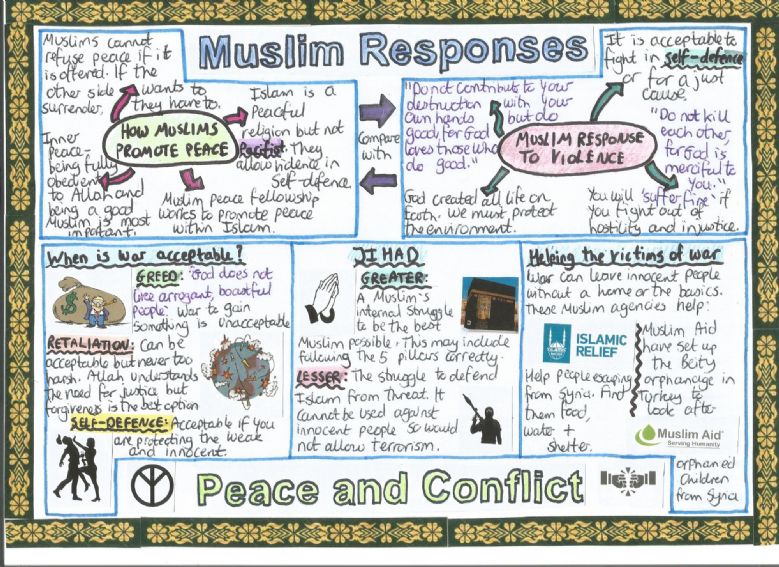 Muslim Responses
Muslims cannot
refuse peace if it
is offered. If the
other side wants to
surrender, they have to.
HOW MUSLIMS
PROMOTE PEACE
Islam is a
Peaceful
religion but not
Pacifist. They
allow violence in
Self-defence.
Inner
peace-
being fully
obedient
to Allah and
being a good
Muslim is most
important.
Muslim peace fellowship
works to promote peace
within Islam.
Compare
with
It is acceptable to
fight in self-defence
or for a just
cause.
"Do not contribute to your
destruction with your
own hands but do
good, for God
loves those who
do good."
MUSLIM RESPONSE
TO VIOLENCE
"Do not kill
each other,
for God is
merciful to
you."
God created all life on
Earth. We must protect
the environment.
You will 'suffer fire' if
you fight out of
hostility and injustice.
When is war acceptable?
GREED: 'God does not
like arrogant, boastful
people'. War to gain
something is unacceptable
$
RETALIATION: Can be
acceptable but never too
harsh. Allah understands
the need for justice but
forgiveness is the best option
SELF-DEFENCE: Acceptable if you
are protecting the weak
and innocent.
JIHAD
GREATER:
A Muslim's
internal struggle
to be the best
Muslim possible. This may include
following the 5 pillars correctly.
LESSER: The struggle to defend
Islam from Threat. It
cannot be used against
innocent people so would
not allow terrorism.
Helping the victims of war
War can leave innocent people
without a home or the basics.
These Muslim agencies help:
ISLAMIC
RELIEF
Help people escaping
from Syria. Find
them food,
water +
shelter.
Muslim Aid
have set up
the Beity
orphanage in
Turkey to
look after
Muslim Aid
Serving Humanity
orphaned
children
from Syria
Peace and Conflict